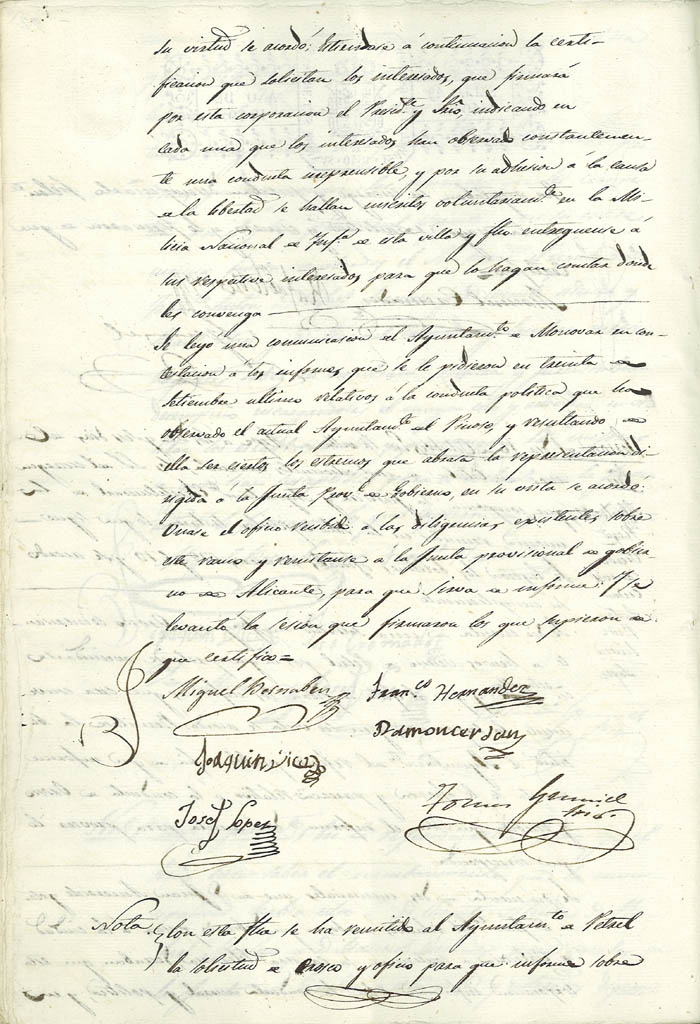 su virtud se acordó: Estiendase á continuacion la certi-
ficacion que solicitan los interesados, que firmará
por esta corporacion el Presid.te y Srio, indicando en
cada una que los interesados han observado constantemen-
te una conducta irreprensible, y por su adhesion á la causa
de la libertad se hallan inscritos voluntariam.te en la Mi-
licia Nacional de Inf.a de esta villa y fho entreguense á
sus respective interesados para que lo hagan constar donde
les convenga
Se leyó una comunicacion del Ayuntam.to de Monovar en con-
testacion á los informes que se le pidieron en treinta de
Setiembre ultimo relativos á la conducta politica que ha
observado el actual Ayuntam.to del Pinoso, y resultando de
ella ser ciertos los estremos que abraza la representacion di-
rigida a la Junta Prov.l de Gobierno, en su vista se acordó:
Unase el oficio recibido á las diligencias existentes sobre
este ramo y remitanse á la Junta provisional de gobier-
no de Alicante, para que sirva de informe. Y se
levantó la sesion que firmaron los que supieron de
que certifico=
Miguel Bernabeu Fran.co Hernandez
Joaquin Rico Ramon Cerdan
Josef Lopez Tomas
Srio.
Nota. Con esta fha se ha remitido al Ayuntam.to de Petrel
la solicitud de y oficio para que informe sobre